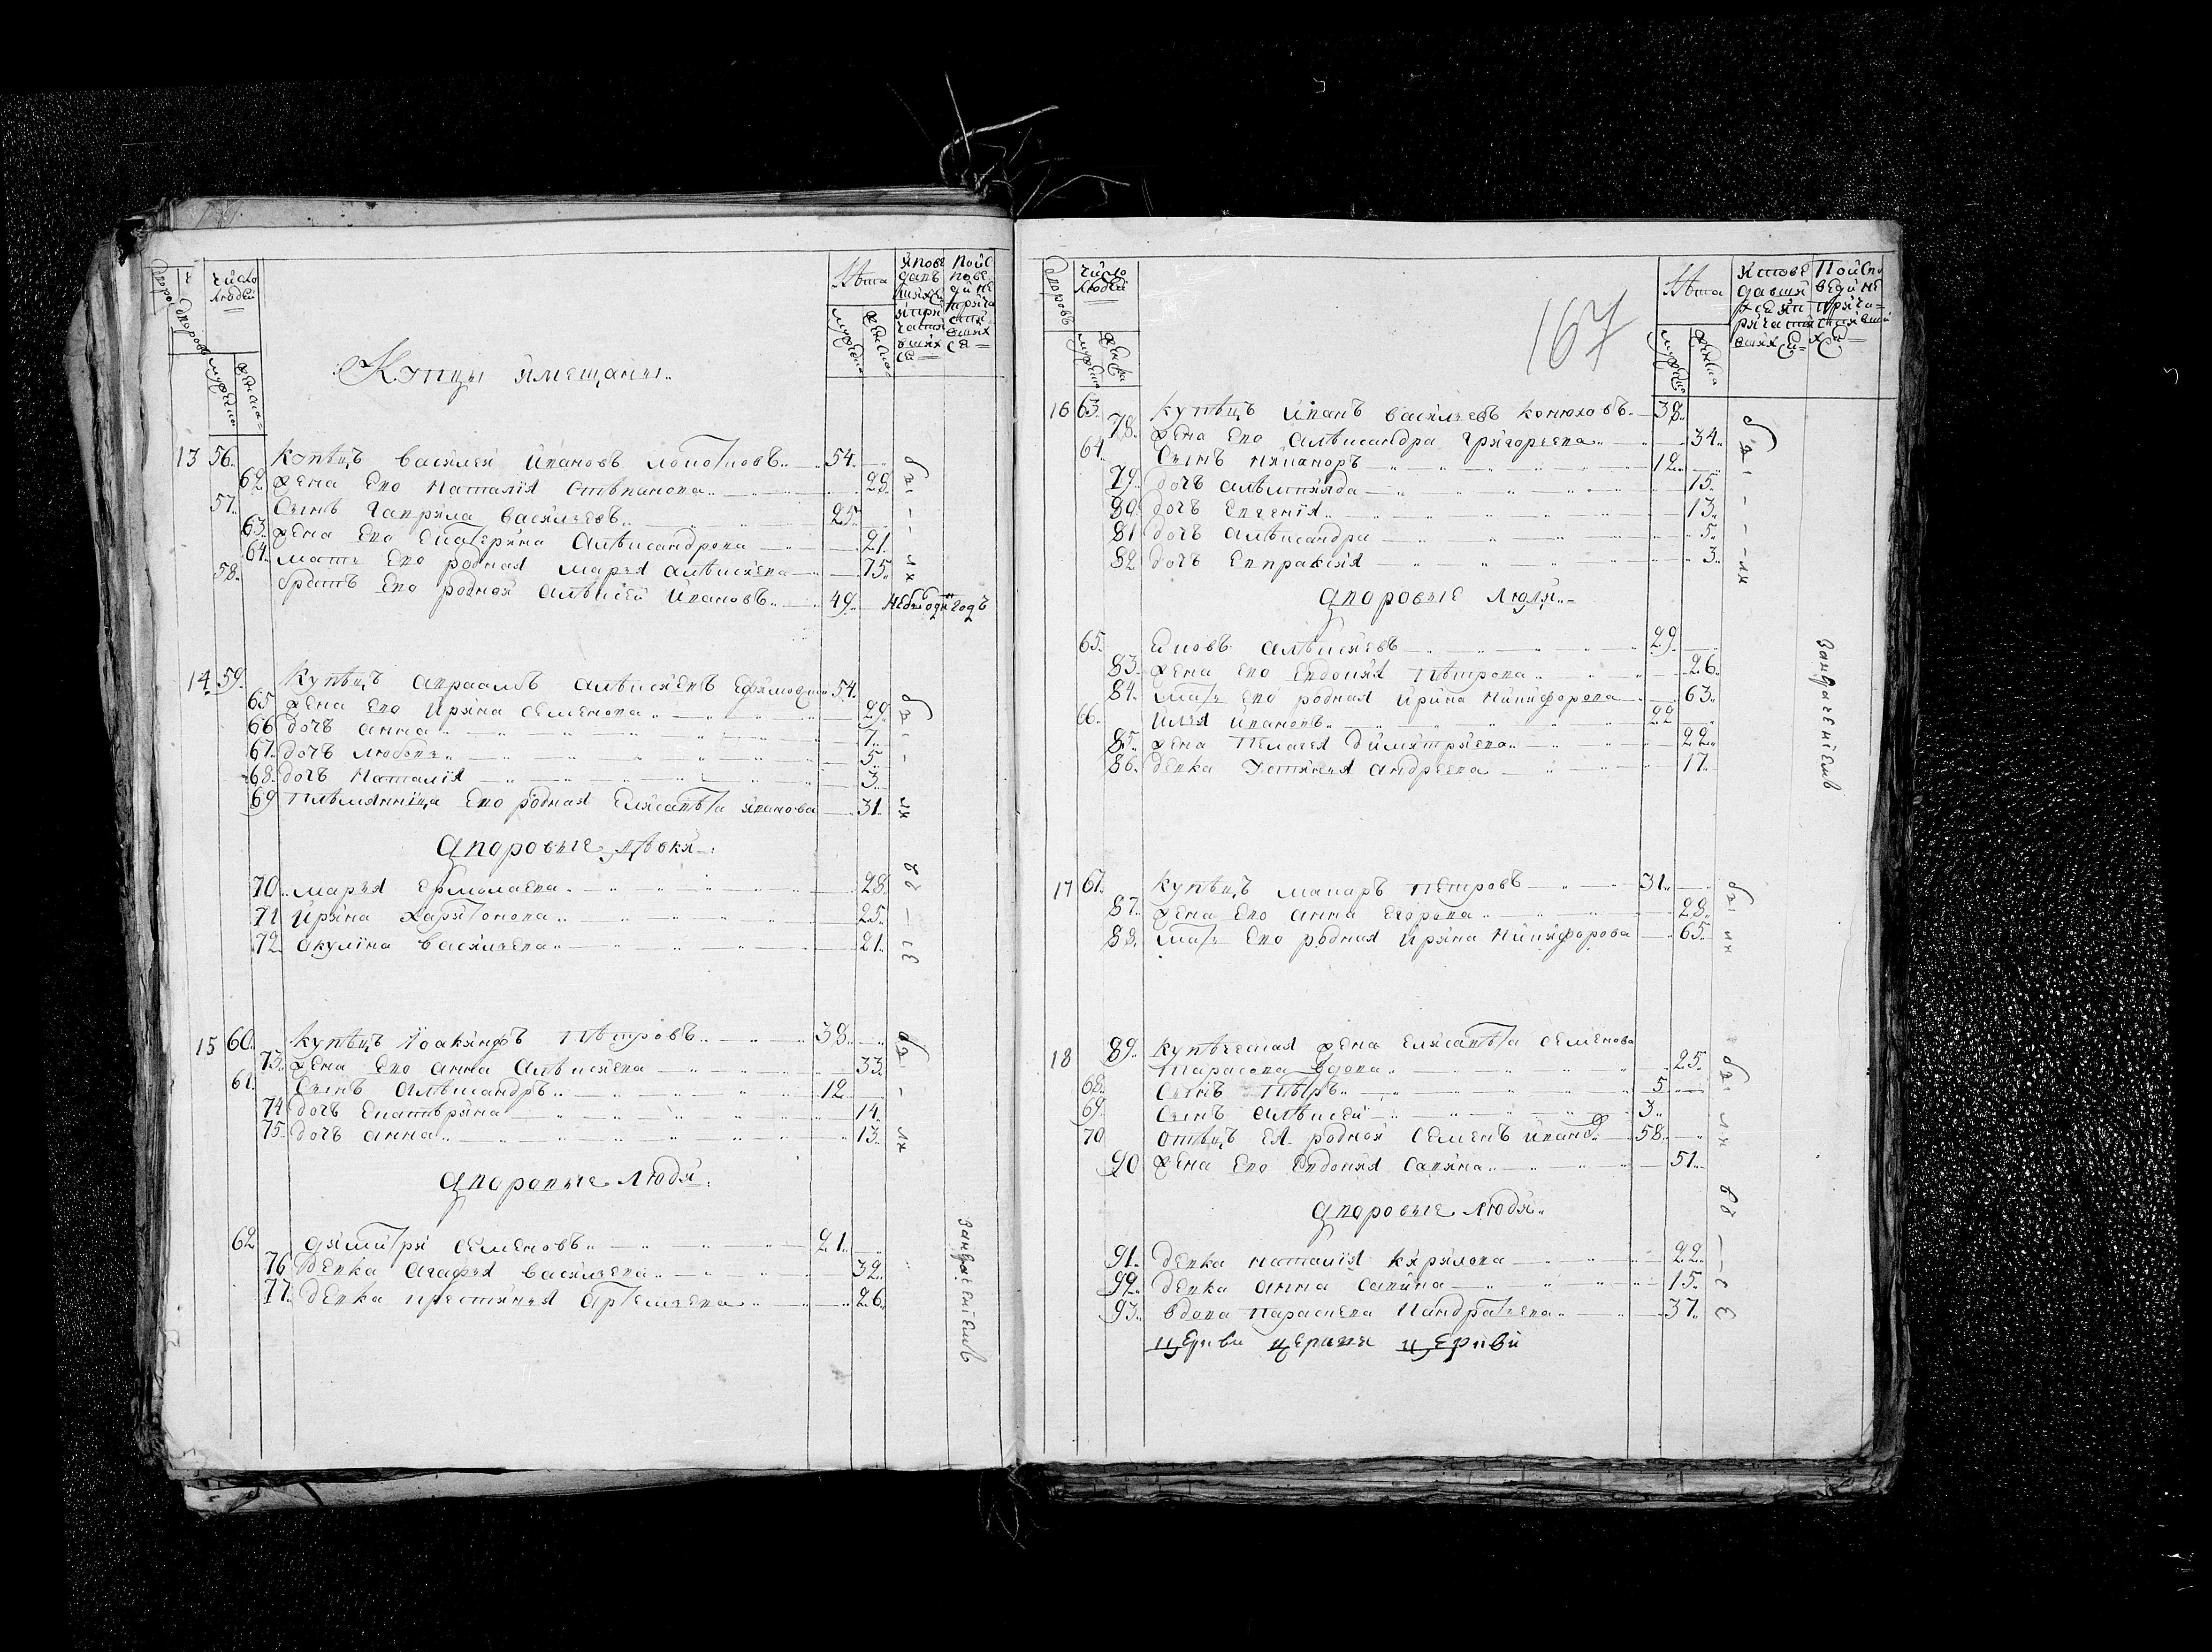 число людей
Лѣта
Купцы и мещаны..
13 56. Купецъ Василей Ивановъ 54.
62. жена Ево Наталiя Степанова.. 28.
57. Сынъ Гаврила Васильевъ.. 25.
63. жена Ево Екатерина Алѣксандрова 21.
64. мать Ево родная Марья Алѣксѣева 75.
58. братъ Ево родной Алѣксѣй Ивановъ.. 49.
14 59. Купѣцъ Авраамъ Алѣксѣевъ 54.
65 жена Ево Ирина Семенова.. 29.
66 дочь Анна 7.
67. дочь Любовь.. 5.
68. дочь Наталiя 3.
69 Племянница Ево родная Елисавѣта Иванова 31.
дворовые дѣвки
70.. Марья Ермолаева. 28.
71 Ирина Харитонова.. 25.
72. Акулина Васильева.. 21.
15 60. Купѣцъ Iоакимъ Пѣтровъ.. 38.
73. жена Ево Анна Алѣксѣева 33.
61. Сынъ Алѣксандръ.. 12
74 дочь Екатѣрина 14.
75. дочь Анна.. 13.
дворовые люди.
62 Димитрий Семеновъ.. 21.
76 Девка Агафья Васильева.. 32.
77. Девка Крестинья Артемьева.. 26.
за нерачениемъ
167
число людей
Лѣта
16 63. Купѣцъ Иванъ Васильевъ Конюховъ. 38.
78. жена Ево Алѣксандра Григорьева.. 34.
64. Сынъ Никаноръ 12.
79. дочь Алѣмпияда 15.
80. дочь Евгенiя.. 13.
81 дочь Алѣксандра 5.
82 дочь Евпраксия 3.
дворовые люди..
65. Яковъ Алѣксѣевъ 29.
83. жена Ево Евдокия Пѣтрова.. 26.
84. мать Ево родная Ирина Никифорова 63.
66. Илья Ивановъ.. 22
85. жена Пелагея Димитриева.. 22.
86. девка Устинья Андреева 17.
за нерачениемъ
17 67. Купѣцъ Макаръ Петровъ 31.
87. жена Ево Анна Егорова.. 28.
88. мать Ево родная Ирина Никифорова 65.
18 89. Купѣческая жена Елисавѣта Семенова
Тарасова вдова.. 25.
68. Сынъ Пѣтръ.. 5.
69. Сынъ Алѣксей 3.
70 отѣцъ Ея родной Семенъ Иванов.. 58.
90 жена Ево Евдокия Савина.. 51.
дворовые люди..
91. девка Наталiя Кирилова 22.
92. девка Анна Савина 15.
93. вдова Парасковья Кандратьева.. 37.
церкви церкви церкви